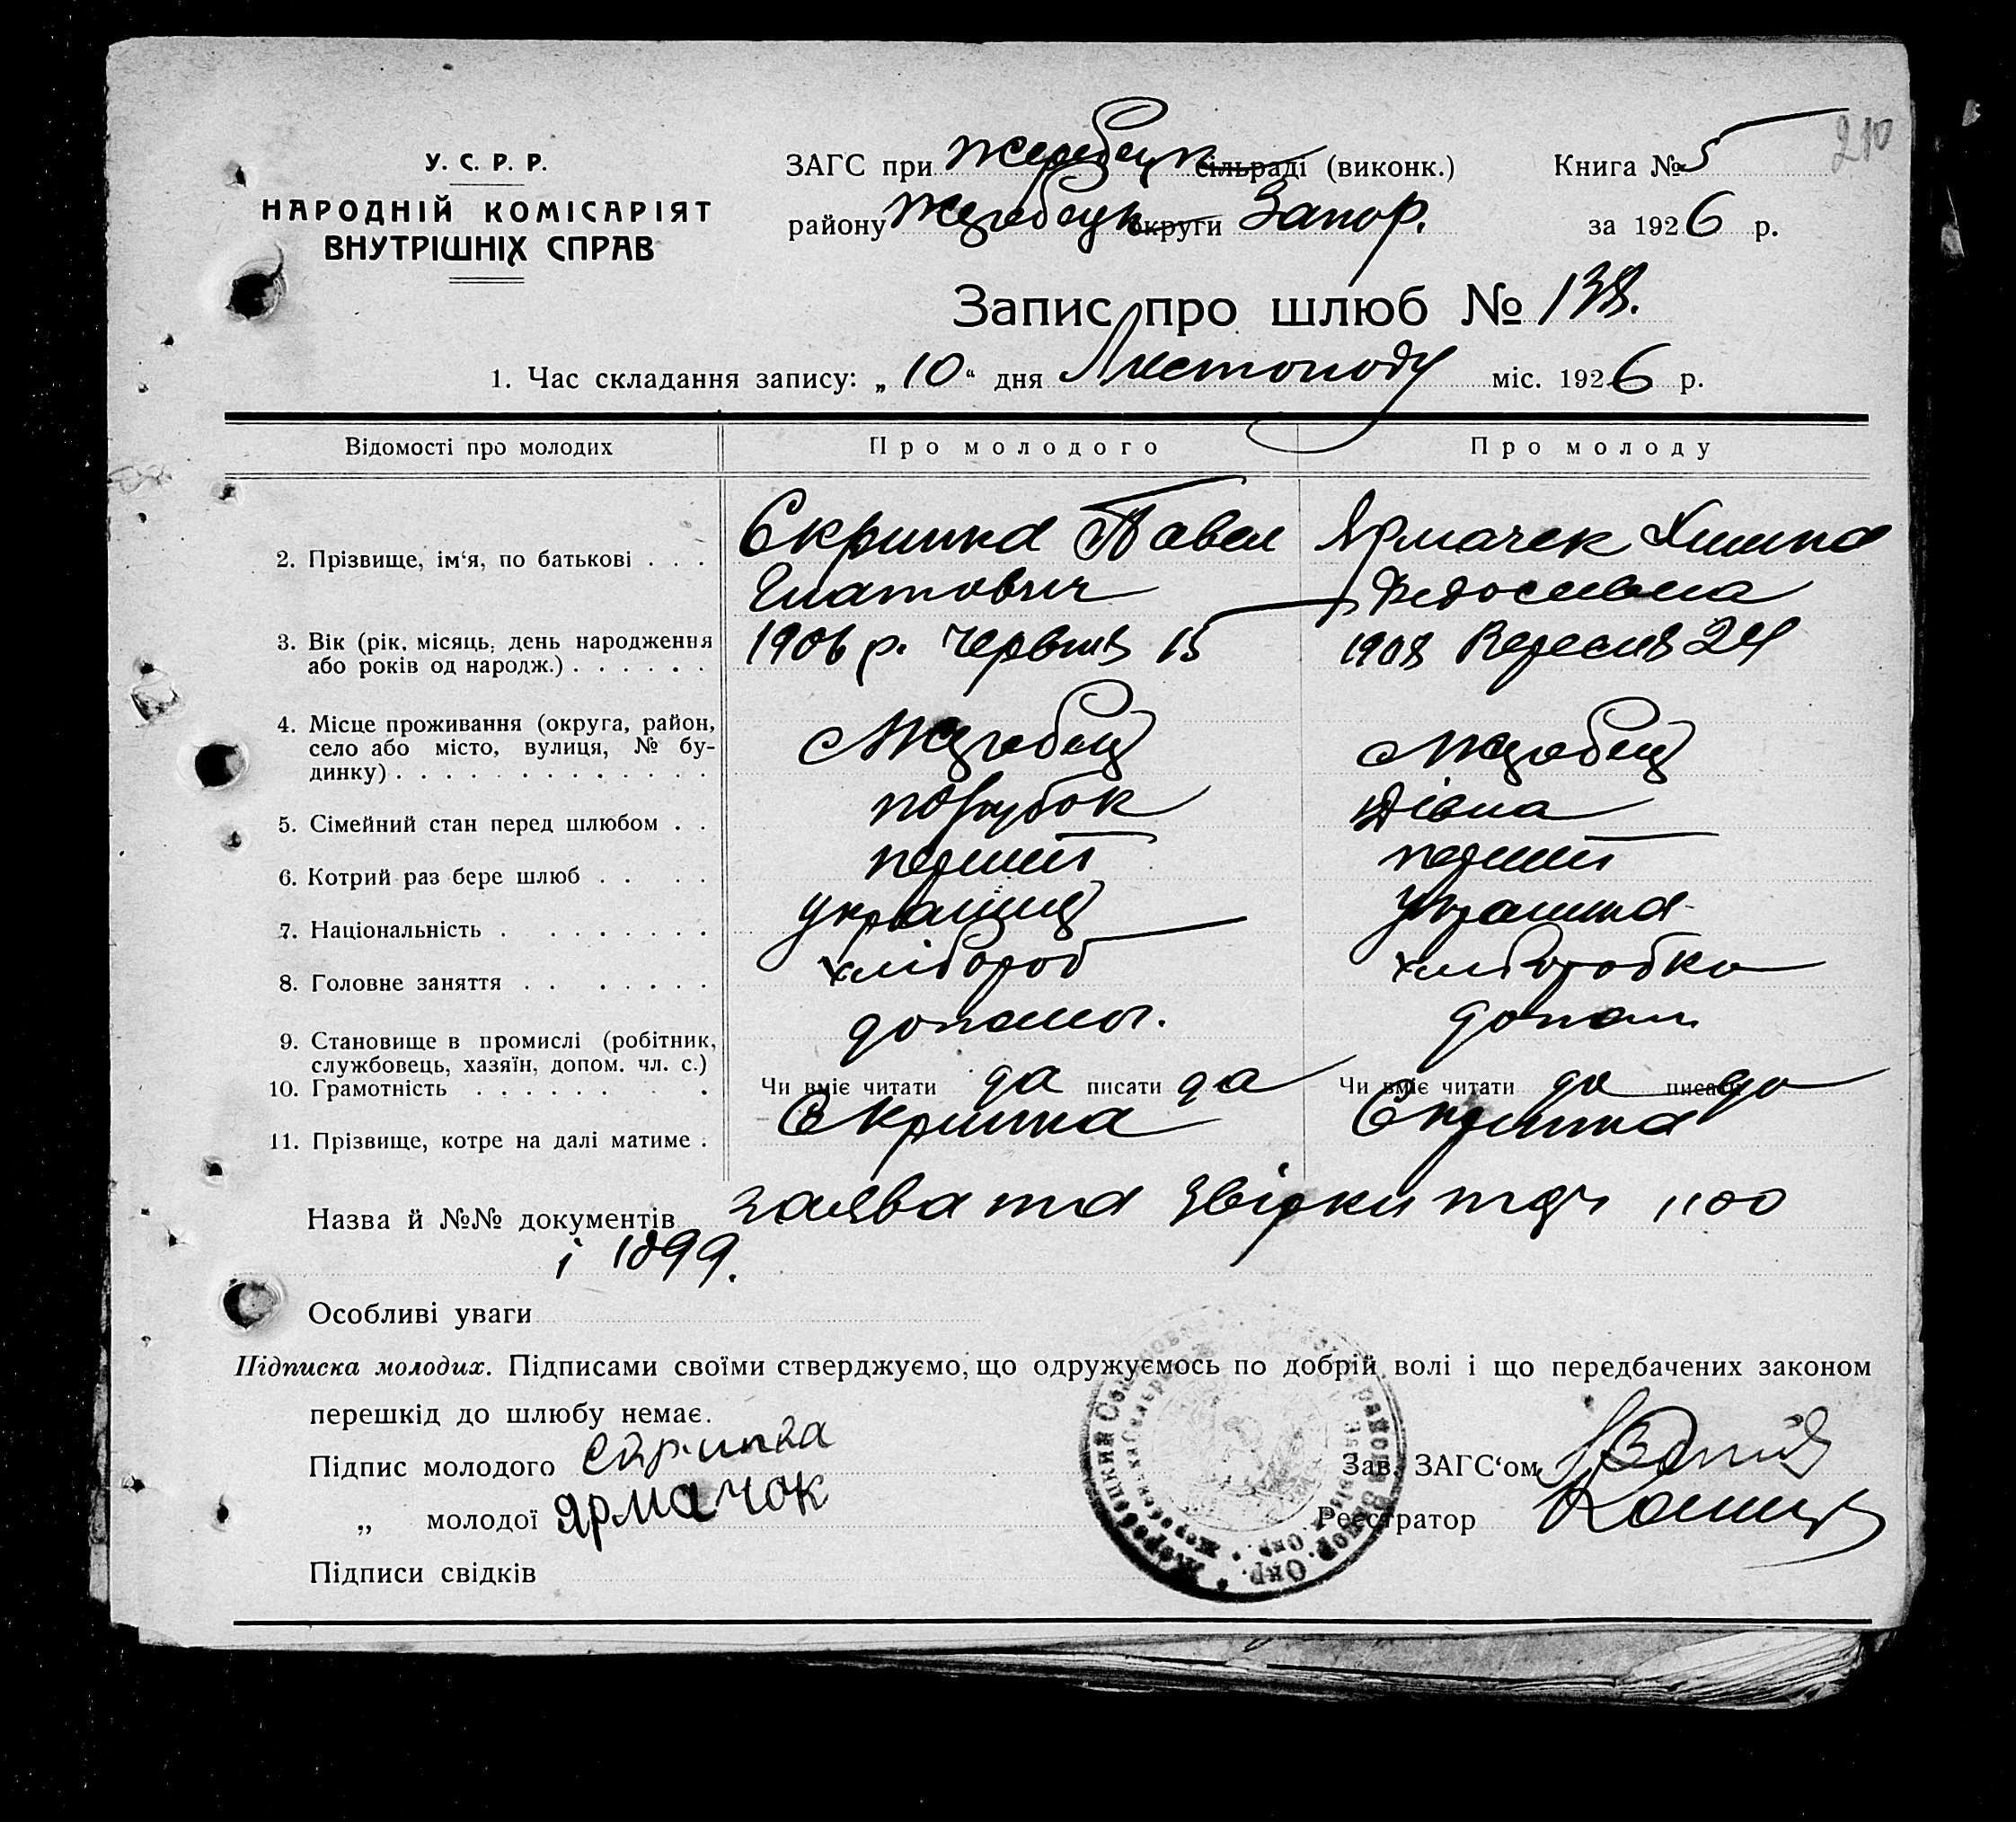 210
У. С. Р. Р.
НАРОДНІЙ КОМІСАРІЯТ
ВНУТРІШНІХ СПРАВ
ЗАГС при Жеребецк сільраді (виконк.)
Книга № 5
району Жеребецк округи Запор.
за 1926 р.
Запис про шлюб № 138.
1. Час складання запису: „10“ дня Листопаду міс. 1926 р.
Відомості про молодих
Про молодого
Про молоду
2. Прізвище, ім‘я, по батькові . . .
Скрипка Павел
Игнатович
Ярмачек
Федосиевна
3. Вік (рік, місяць, день народження
або років од народж.) . . . . . .
1906 р. Червня 15
1908 Вересня 24
4. Місце проживання (округа, район,
село або місто, вулиця, № бу-
динку) . . . . . . . . . . . . .
Жеребец
Жеребец
5. Сімейний стан перед шлюбом . .
парубок
Дівка
6. Котрий раз бере шлюб . . . .
перший
перший
7. Національність . . . . . . . .
українец
Українка
8. Головне заняття . . . . . . .
хлібороб
хліборобка
9. Становище в промислі (робітник,
службовець, хазяїн, допом. чл. с.)
допом.
10. Грамотність . . . . . . . .
Чи вміє читати да писати да
Чи вміє читати да писати да
11. Прізвище, котре на далі матиме .
Скрипка
Скрипка
Назва й №№ документів заява та звідки 1100
і 1099.
Особливі уваги
Підписка молодих. Підписами своїми стверджуємо, що одружуємось по добрій волі і що передбачених законом
перешкід до шлюбу немає.
Підпис молодого Скрипка
„ молодої Ярмачок
Зав. ЗАГС‘ом
Реєстратор
Підписи свідків